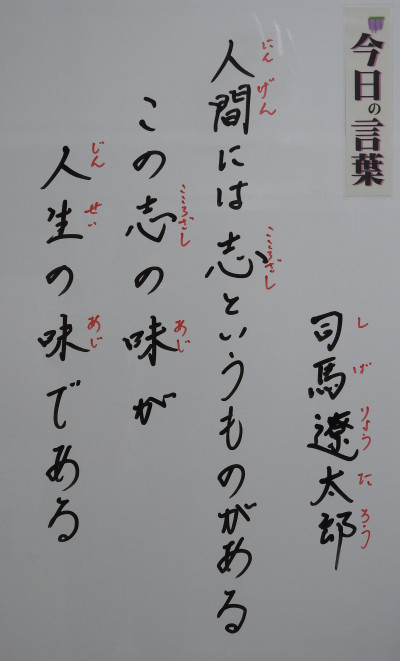 今日の言葉
司馬遼太郎
しばりょうたろう
人間には志というものがある
にんげん こころざし
この志の味が
こころざし あじ
人生の味である
じんせい あじ